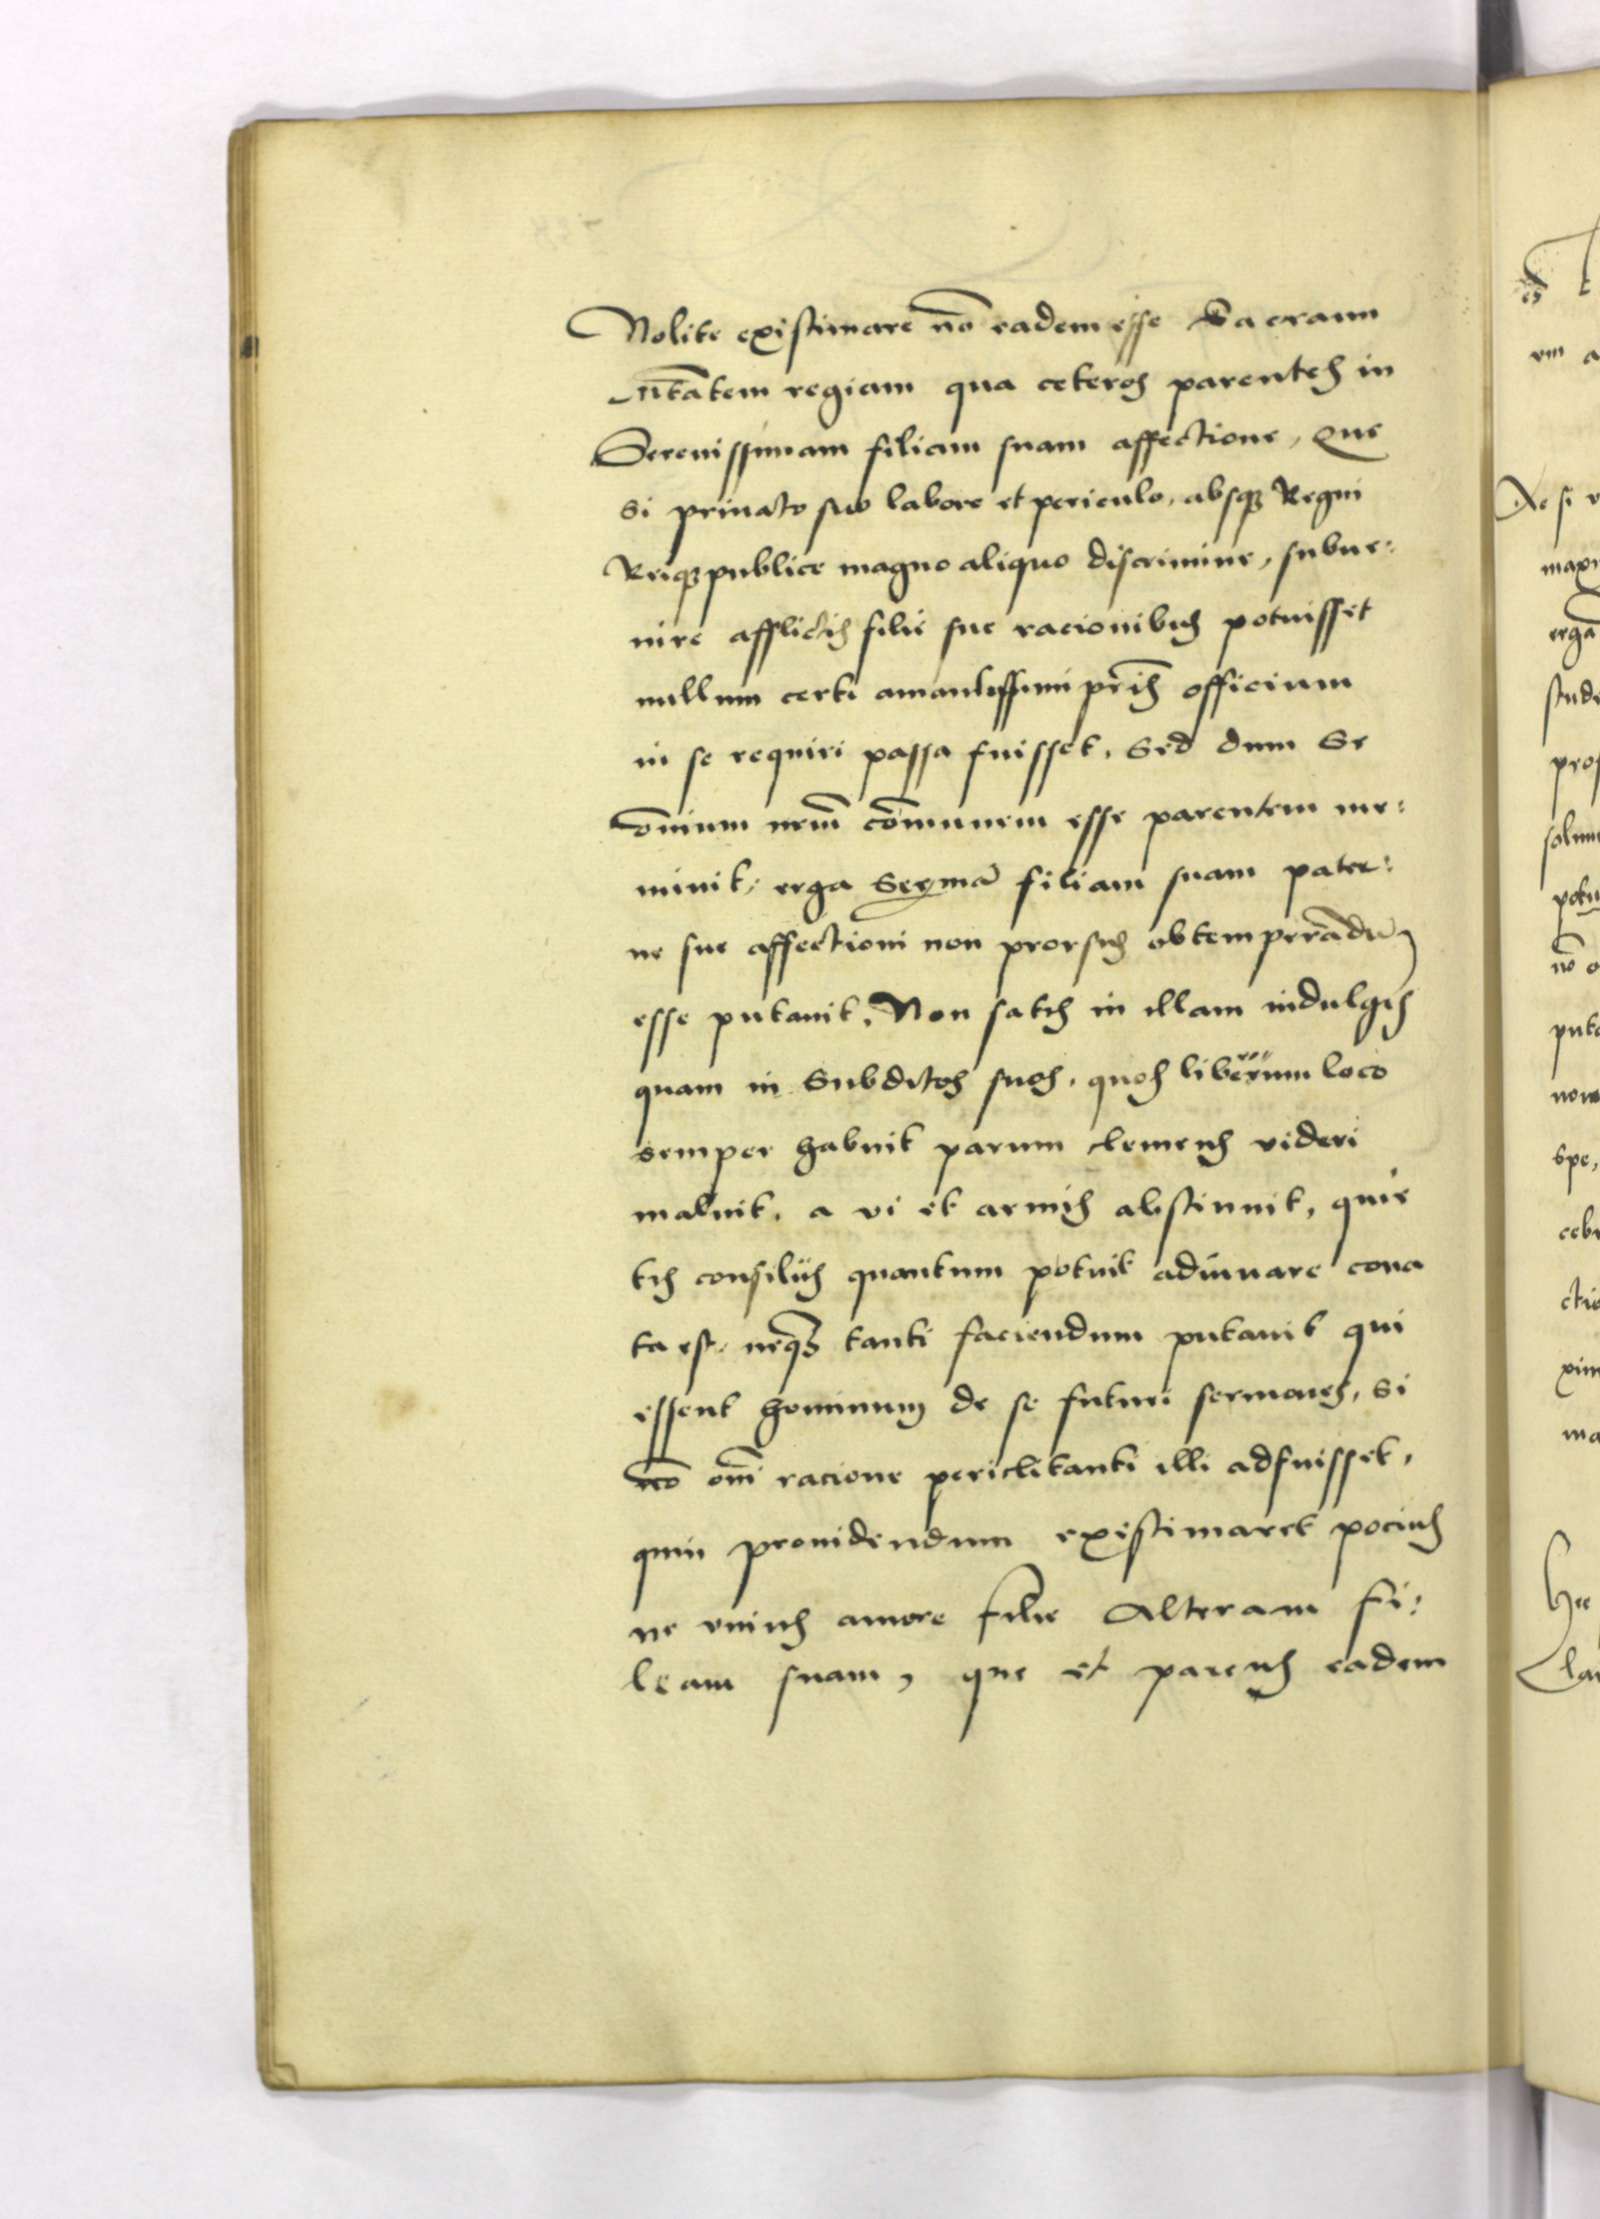 Nolite existimare nō eadem esse Sacram
Mtātem regiam qua ceteros parentes in
Serenissimam filiam suam affectione, Que
si priuato suo labore et periculo, absq3 Regni
Reiq3publice magno aliquo discrimine, subue:
nire afflictis filie sue racionibus potuisset
nullum certi amantissimi pr̄is officium
in se requiri passa fuisset, Sed dum Se
om̄nium nrm̄ cōmunem esse parentem me:
minit, erga Serma filiam suam pater:
ne sue affectioni non prorsus obtemperādū
esse putauit, Non satis in illam indulgēs
quam in Subditos suos, quos liberum loco
semper habuit parum clemens videri
maluit, a vi et armis abstinuit, quie
tis consilijs quantum potuit adiuuare cona
ta est, neq3 tanti faciendum putauit qui
essent hominum de se futuri sermones, si
nō om̄i racione periclitanti illi adfuisset,
quin prouidendum existimaret pocius
ne vnius amore filie Alteram fi:
leam suam, que et parens eadem